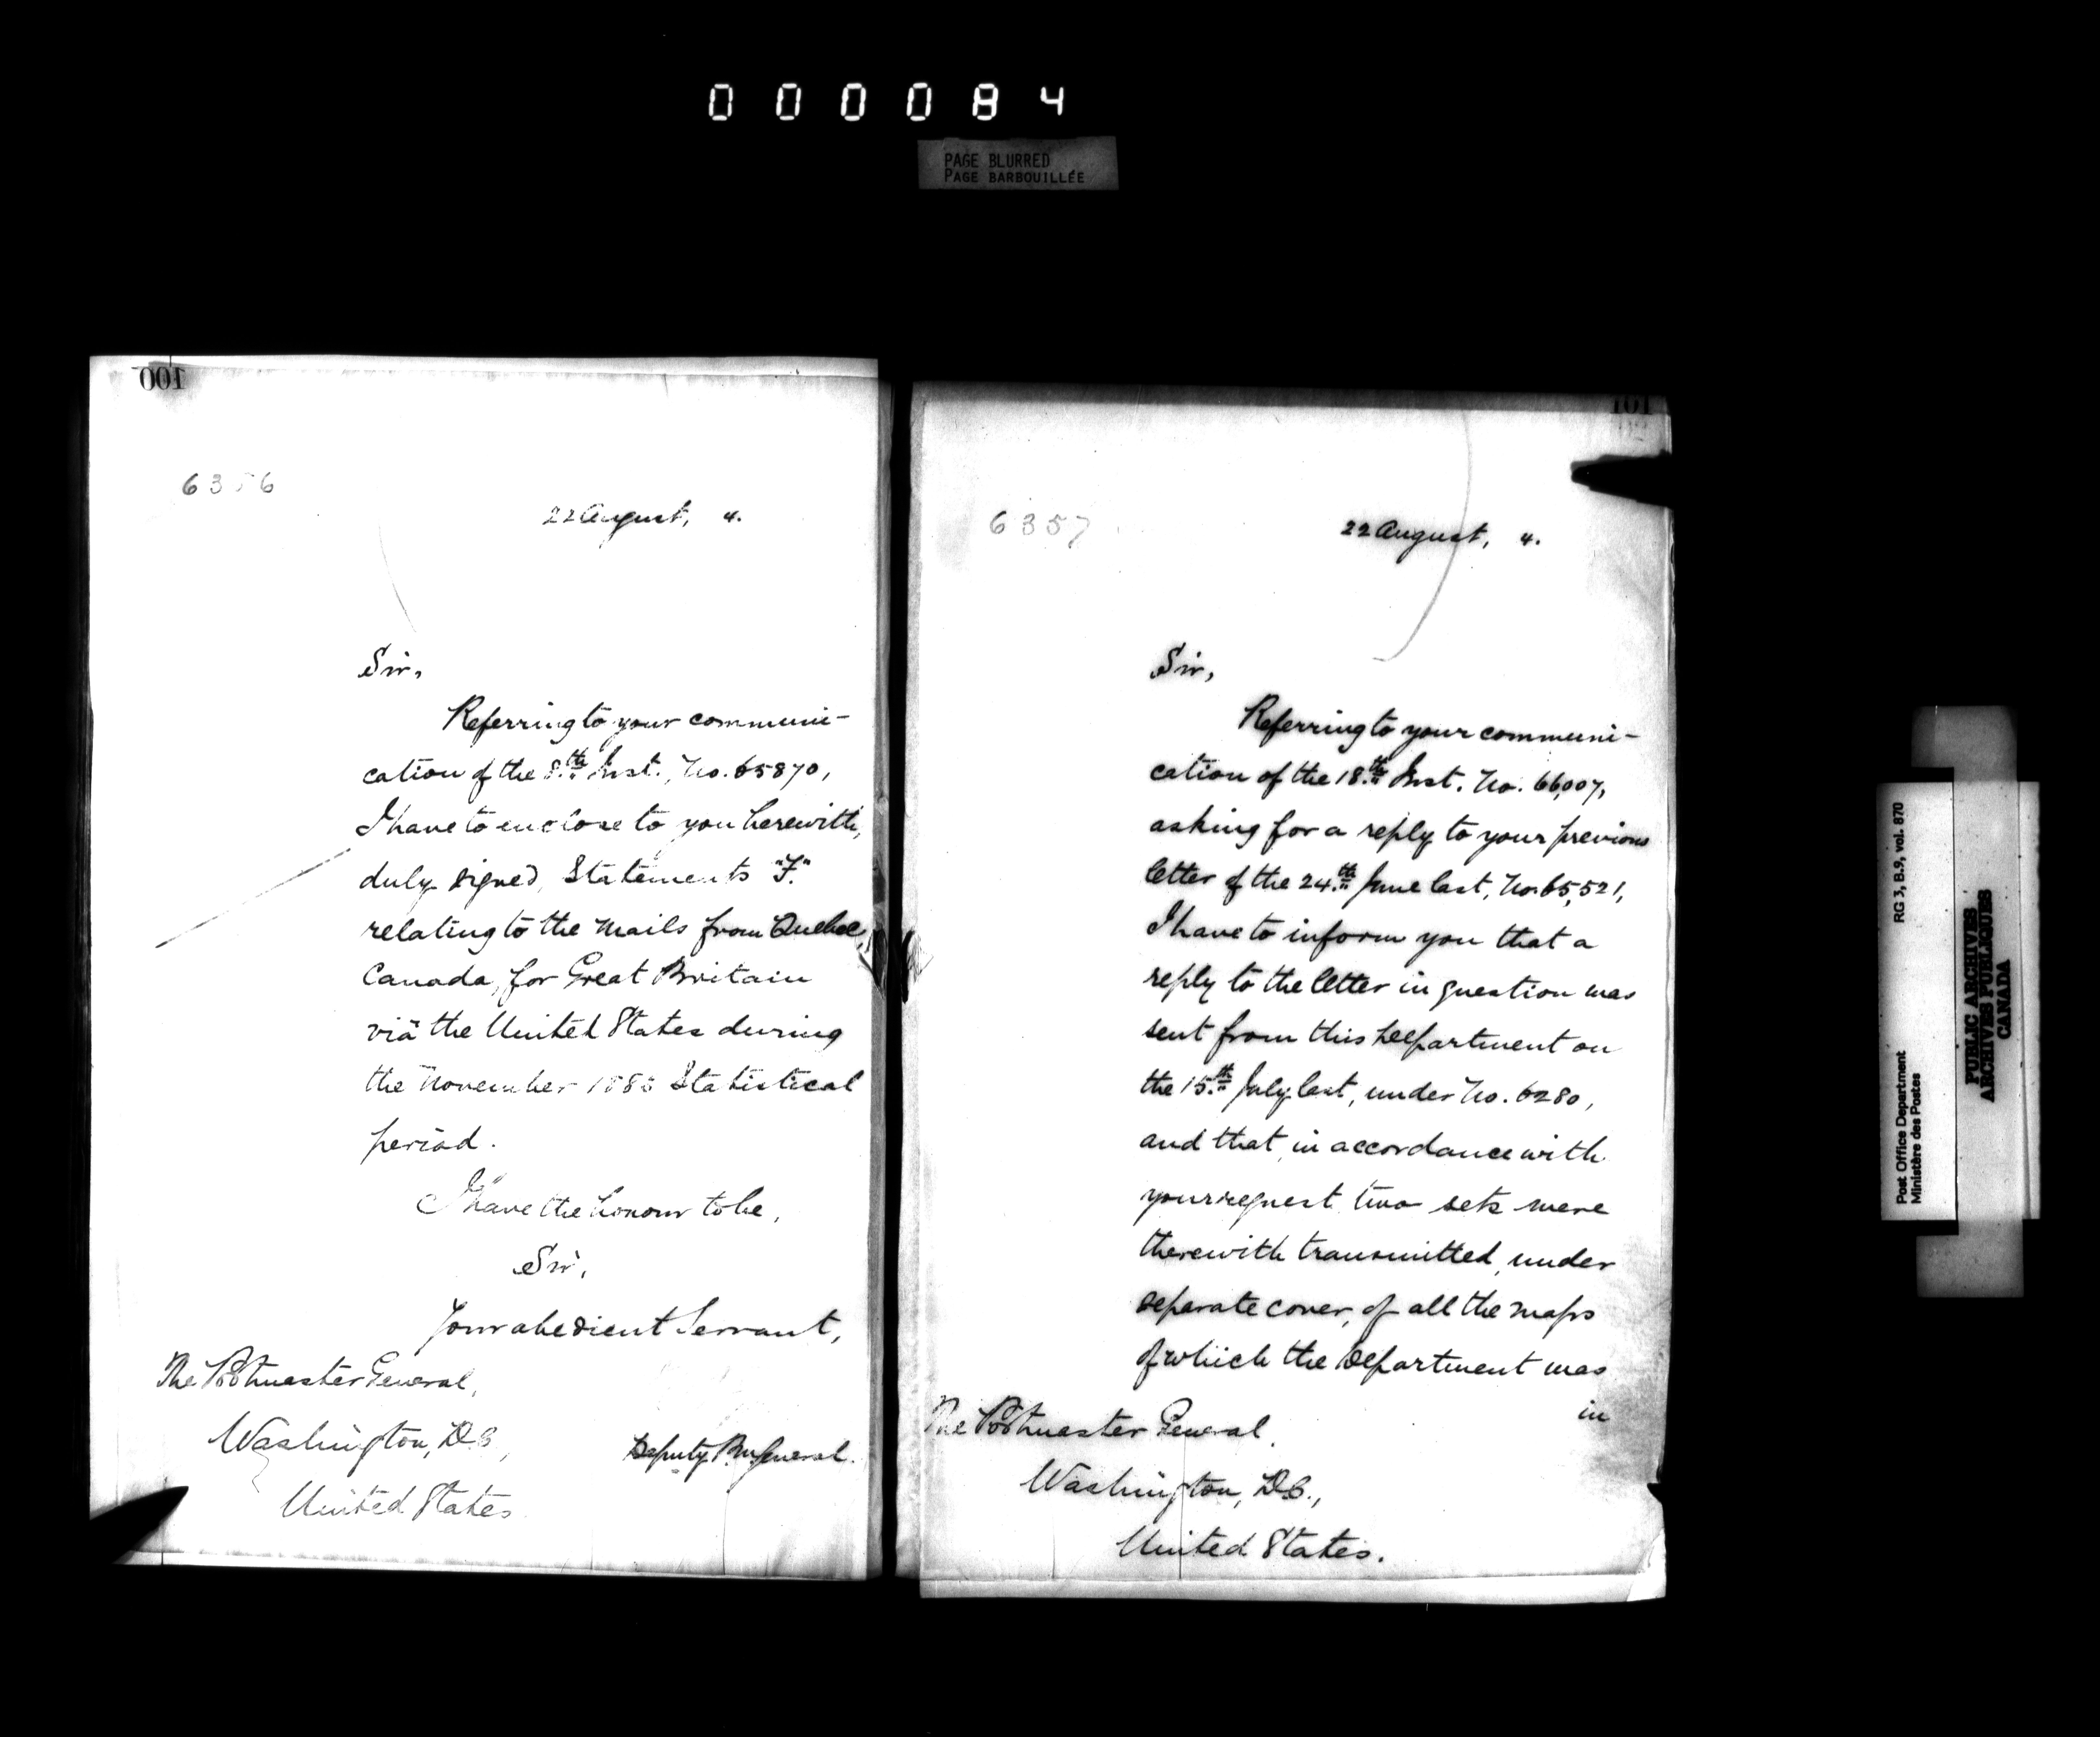 000084
PAGE BLURRED
PAGE BARBOUILLÉE
100
6356
22 August, 4.
Sir,
Referring to your communi-
cation of the 8th Inst., No. 65870,
I have to enclose to you herewith,
duly signed, Statements "F."
relating to the Mails from Quebec,
Canada, for Great Britain
viâ the United States during
the November 1883 Statistical
period.
I have the honour to be,
Sir,
Your obedient Servant,
The Postmaster General,
Washington, D.C.,
Deputy P.M. General.
United States
101
6357
22 August, 4.
Sir,
Referring to your communi-
cation of the 18th Inst. No. 66,007,
asking for a reply to your previous
letter of the 24th June last, No. 65,521,
I have to inform you that a
reply to the letter in question was
sent from this Department on
the 15th July last, under No. 6280,
and that, in accordance with
your request, two sets were
therewith transmitted, under
separate cover, of all the maps
of which the Department was
in
The Postmaster General,
Washington, D.C.,
United States.
Post Office Department
Ministère des Postes
RG 3, B.9, vol. 870
PUBLIC ARCHIVES
ARCHIVES PUBLIQUES
CANADA